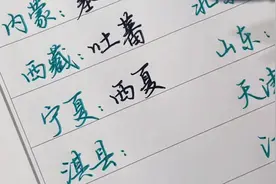 内蒙：
西藏：吐蕃
山东：
宁夏：西夏
淇县：